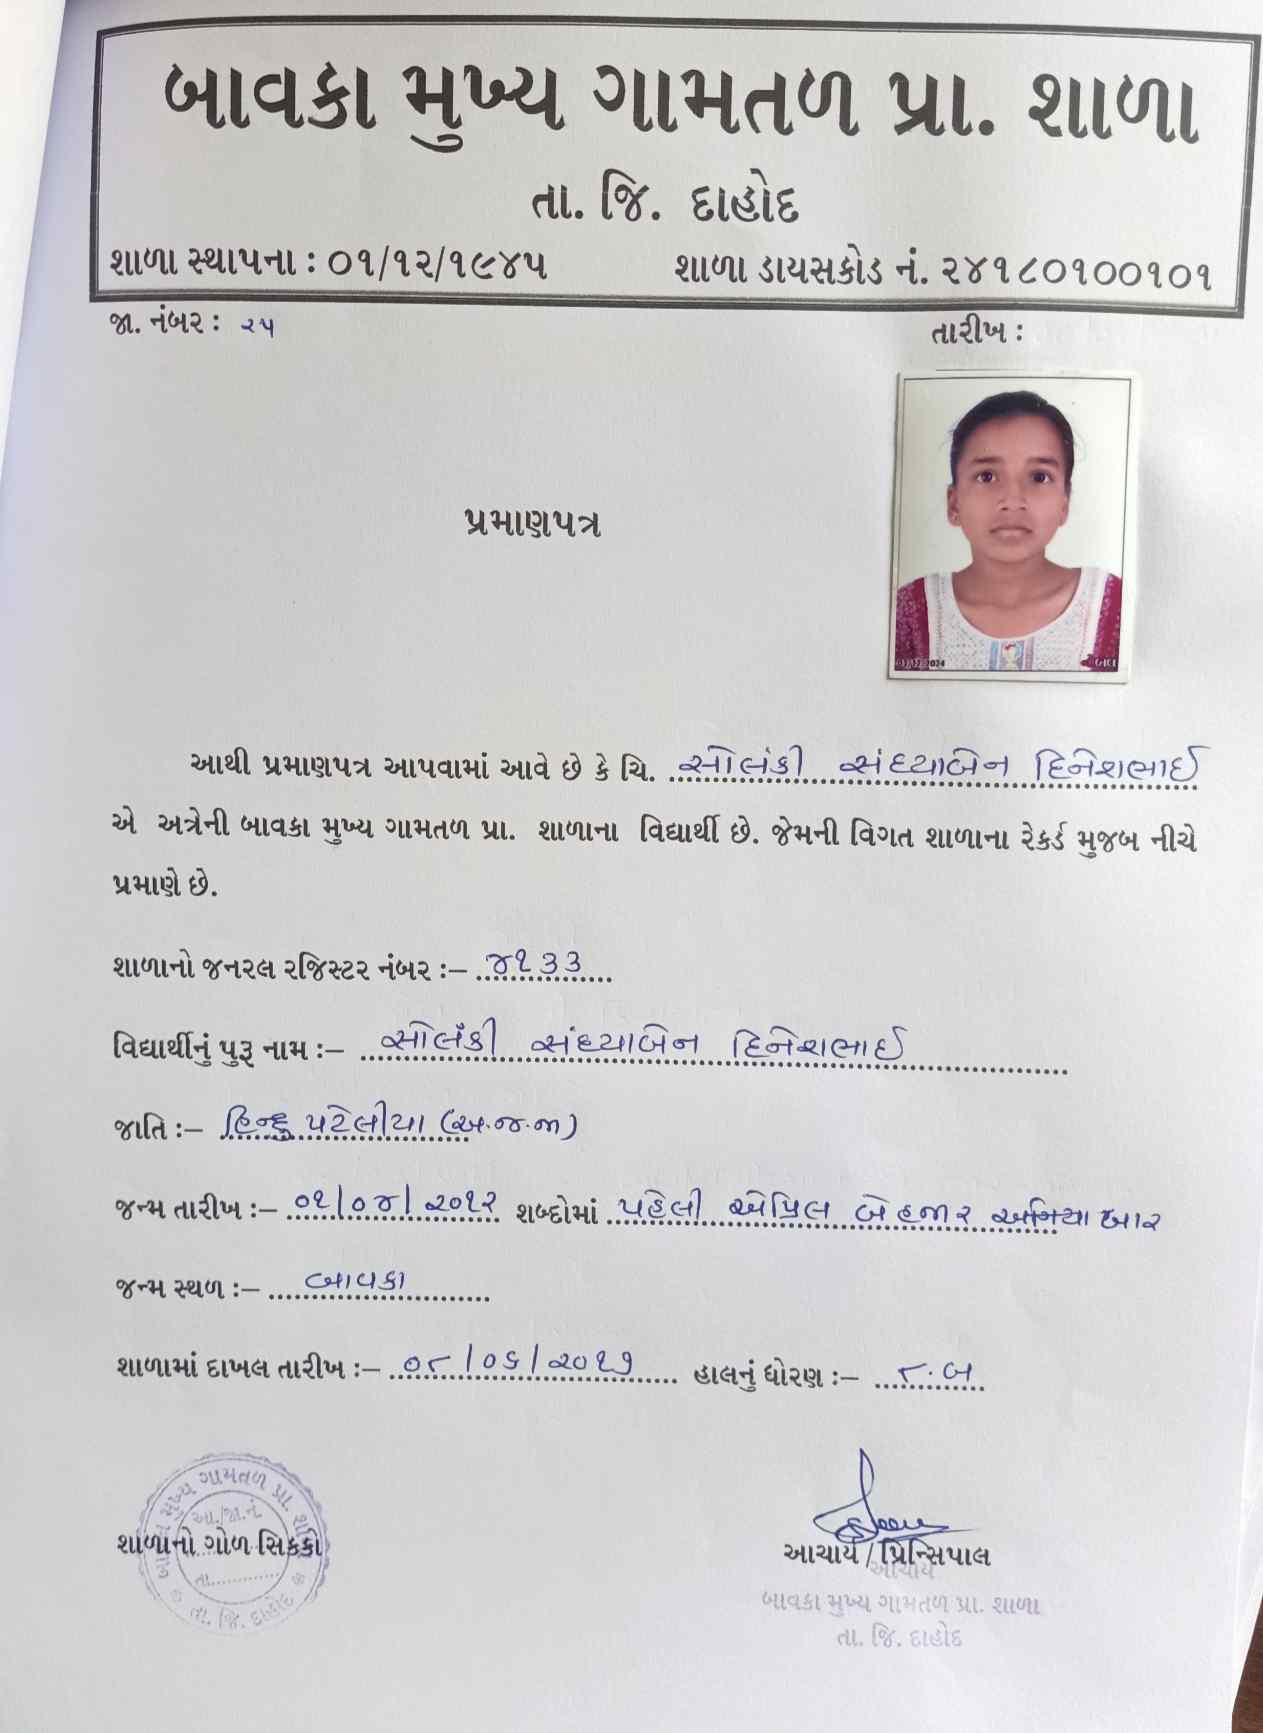 બાવકા મુખ્ય ગામતળ પ્રા. શાળા
તા. જિ. દાહોદ
શાળા સ્થાપના : ૦૧/૧૨/૧૯૪૫ શાળા ડાયસકોડ નં. ૨૪૧૮૦૧૦૦૧૦૧
જા. નંબર : ૨૫ તારીખ :
પ્રમાણપત્ર
આથી પ્રમાણપત્ર આપવામાં આવે છે કે ચિ. સોલંકી સંધ્યાબેન દિનેશભાઈ
એ અત્રેની બાવકા મુખ્ય ગામતળ પ્રા. શાળાના વિદ્યાર્થી છે. જેમની વિગત શાળાના રેકર્ડ મુજબ નીચે
પ્રમાણે છે.
શાળાનો જનરલ રજિસ્ટર નંબર :– ૪૧૩૩
વિદ્યાર્થીનું પુરૂ નામ :– સોલંકી સંધ્યાબેન દિનેશભાઈ
જાતિ :– હિન્દુ પટેલીયા (અ.જ.જા)
જન્મ તારીખ :– ૦૧/૦૪/૨૦૧૨ શબ્દોમાં પહેલી એપ્રિલ બે હજાર બાર
જન્મ સ્થળ :– બાવકા
શાળામાં દાખલ તારીખ :– ૦૮/૦૬/૨૦૧૭ હાલનું ધોરણ :– ૮.બ
ગામતળ પ્રા. શાળા
આ./જા.નં.
શાળાનો ગોળ સિક્કો
તા.
તા. જિ. દાહોદ
આચાર્ય / પ્રિન્સિપાલ
આચાર્ય
બાવકા મુખ્ય ગામતળ પ્રા. શાળા
તા. જિ. દાહોદ